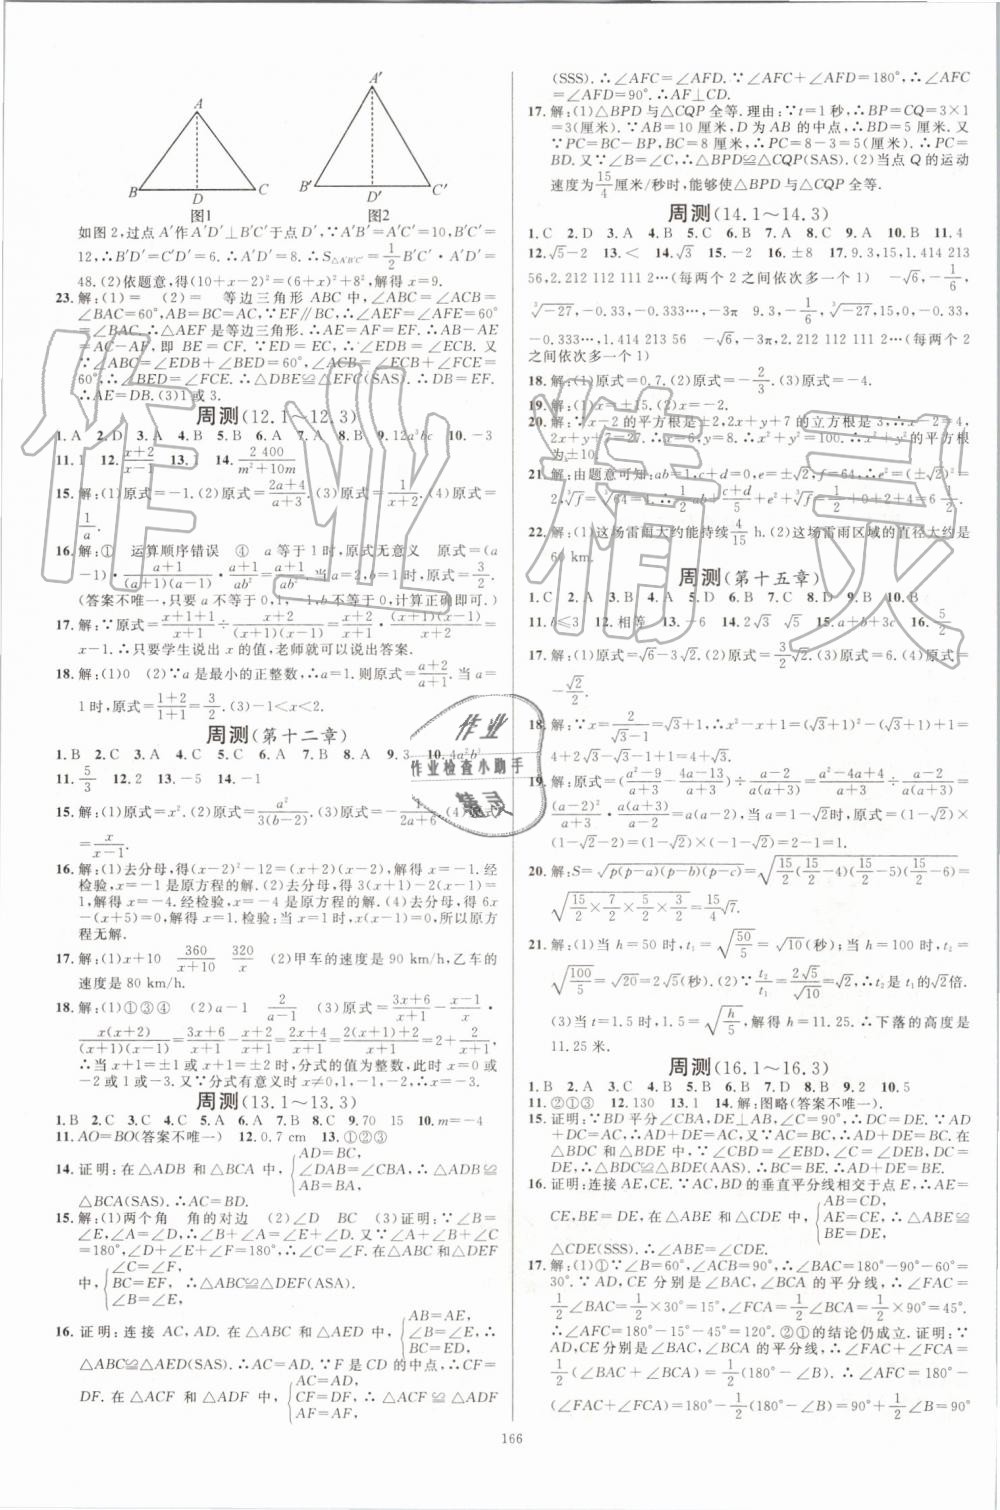 A
B
D
C
图1
A′
B′
D′
C′
图2
如图2,过点A′作A′D′⊥B′C′于点D′,∵A′B′=A′C′=10,B′C′=
12,∴B′D′=C′D′=6.∴A′D′=8.∴S△A′B′C′=1/2 B′C′·A′D′=
48.(2)依题意,得(10+x-2)²=(6+x)²+8²,解得x=9.
23.解:(1)= (2)= 等边三角形ABC中,∠ABC=∠ACB
=∠BAC=60°,AB=BC=AC,∵EF∥BC,∴∠AEF=∠AFE=60°
=∠BAC.∴△AEF是等边三角形.∴AE=AF=EF.∴AB-AE
=AC-AF,即BE=CF.∵ED=EC,∴∠EDB=∠ECB.又
∵∠ABC=∠EDB+∠BED=60°,∠ACB=∠ECB+∠FCE=
60°,∴∠BED=∠FCE.∴△DBE≌△EFC(SAS).∴DB=EF.
∴AE=DB.(3)1或3.
周测(12.1~12.3)
1.A 2.D 3.A 4.B 5.B 6.A 7.A 8.B 9.12a³bc 10.-3
11.1 12.(x+2)/(x-1) 13.-1 14.2 400/(m²+10m)
15.解:(1)原式=-1.(2)原式=(2a+4)/(a+3).(3)原式=1/(x+2).(4)原式=
1/a.
16.解:① 运算顺序错误 ④ a等于1时,原式无意义 原式=(a
-1)·(a+1)/((a+1)(a-1))·(a+1)/ab²=(a+1)/ab².当a=2,b=1时,原式=3/2.
(答案不唯一,只要a不等于0,1,-1,b不等于0,计算正确即可.)
17.解:∵原式=(x+1+1)/(x+1)÷(x+2)/((x+1)(x-1))=(x+2)/(x+1)·(x+1)(x-1)/(x+2)
=x-1.∴只要学生说出x的值,老师就可以说出答案.
18.解:(1)0 (2)∵a是最小的正整数,∴a=1.则原式=(a+2)/(a+1).当a=
1时,原式=(1+2)/(1+1)=3/2.(3)-1<x<2.
周测(第十二章)
1.B 2.C 3.A 4.C 5.B 6.A 7.B 8.A 9.3 10.4a²b²
11.5/3 12.2 13.-5 14.-1
15.解:(1)原式=x².(2)原式=a²/(3(b-2)).(3)原式=-1/(2a+4).(4)原式
=x/(x-1).
16.解:(1)去分母,得(x-2)²-12=(x+2)(x-2),解得x=-1.经
检验,x=-1是原方程的解.(2)去分母,得3(x+1)-2(x-1)=
1,解得x=-4.经检验,x=-4是原方程的解.(4)去分母,得6x
-(x+5)=0,解得x=1.检验:当x=1时,x(x-1)=0,所以原方
程无解.
17.解:(1)x+10 360/(x+10) 320/x (2)甲车的速度是90 km/h,乙车的
速度是80 km/h.
18.解:(1)①③④ (2)a-1 2/(a-1) (3)原式=(3x+6)/(x+1)-(x-1)/x·
x(x+2)/((x+1)(x-1))=(3x+6)/(x+1)-(x+2)/(x+1)=(2x+4)/(x+1)=(2(x+1)+2)/(x+1)=2+2/(x+1),
∴当x+1=±1或x+1=±2时,分式的值为整数,此时x=0或
-2或1或-3.又∵分式有意义时x≠0,1,-1,-2,∴x=-3.
周测(13.1~13.3)
1.B 2.C 3.C 4.D 5.A 6.B 7.A 8.C 9.70 15 10.m=-4
11.AO=BO(答案不唯一) 12.0.7 cm 13.①②③
14.证明:在△ADB和△BCA中,{AD=BC,∠DAB=∠CBA,AB=BA,∴△ADB≌
△BCA(SAS).∴AC=BD.
15.解:(1)两个角 角的对边 (2)∠D BC (3)证明:∵∠B=
∠E,∠A=∠D,∴∠B+∠A=∠E+∠D.又∵∠A+∠B+∠C
=180°,∠D+∠E+∠F=180°,∴∠C=∠F.在△ABC和△DEF
中,{∠C=∠F,BC=EF,∠B=∠E,∴△ABC≌△DEF(ASA).
16.证明:连接AC,AD.在△ABC和△AED中,{AB=AE,∠B=∠E,BC=ED,∴
△ABC≌△AED(SAS).∴AC=AD.∵F是CD的中点,∴CF=
DF.在△ACF和△ADF中,{AC=AD,CF=DF,AF=AF,∴△ACF≌△ADF
(SSS).∴∠AFC=∠AFD.∵∠AFC+∠AFD=180°,∴∠AFC=
∠AFD=90°.∴AF⊥CD.
17.解:(1)△BPD与△CQP全等.理由:∵t=1秒,∴BP=CQ=3×1
=3(厘米).∵AB=10厘米,D为AB的中点,∴BD=5厘米.又
∵PC=BC-BP,BC=8厘米,∴PC=8-3=5(厘米).∴PC=
BD.又∵∠B=∠C,∴△BPD≌△CQP(SAS).(2)当点Q的运动
速度为15/4厘米/秒时,能够使△BPD与△CQP全等.
周测(14.1~14.3)
1.C 2.D 3.A 4.B 5.C 6.D 7.A 8.C 9.A 10.B 11.4
12.√5-2 13.< 14.√3 15.-2 16.±8 17.9.3,1.414 213
56,2.212 112 111 2…(每两个2之间依次多一个1) -√6,-1/6,
³√-27,-0.33,-0.333…,-3π 9.3,-1/6,³√-27,15,0,-0.33,
-0.333…,1.414 213 56 -√6,-3π,2.212 112 111 2…(每两个2
之间依次多一个1)
18.解:(1)原式=0.7.(2)原式=-2/3.(3)原式=-4.
19.解:(1)x=±15.(2)x=-2.
20.解:∵x-2的平方根是±2,2x+y+7的立方根是3,∴x-2=4,
2x+y+7=27.∴x=6,y=8.∴x²+y²=100.∴x²+y²的平方根
为±10.
21.解:由题意可知:ab=1,c+d=0,e=±√2,f=64,∴e²=(±√2)²
=2,³√f=³√64=4.∴1/2ab+(c+d)/5+e²+³√f=1/2+0+2+4=6 1/2.
22.解:(1)这场雷雨大约能持续4/15 h.(2)这场雷雨区域的直径大约是
60 km.
周测(第十五章)
1.C 2.A 3.B 4.A 5.D 6.A 7.D 8.C 9.D 10.B
11.b≤3 12.相等 13.-6 14.2√3 √5 15.a+b+3c 16.5/2
17.解:(1)原式=√6-3√2.(2)原式=13/2√2.(3)原式=6.(4)原式=
-√2/2.
18.解:∵x=2/(√3-1)=√3+1,∴x²-x+1=(√3+1)²-(√3+1)+1=
4+2√3-√3-1+1=4+√3.
19.解:原式=((a²-9)/(a+3)-(4a-13)/(a+3))÷(a-2)/(a+3)=(a²-4a+4)/(a+3)÷(a-2)/(a+3)=
(a-2)²/(a+3)·(a+3)/(a-2)=a(a-2).当a=1-√2时,原式=(1-√2)×
(1-√2-2)=(1-√2)×(-1-√2)=-(1-√2)(1+√2)=-(1-2)
=1.
20.解:S=√(p(p-a)(p-b)(p-c))=√(15/2(15/2-4)(15/2-5)(15/2-6)=
√(15/2×7/2×5/2×3/2)=15/4√7.
21.解:(1)当h=50时,t₁=√(50/5)=√10(秒);当h=100时,t₂=
√(100/5)=√20=2√5(秒).(2)∵t₂/t₁=2√5/√10=√2,∴t₂是t₁的√2倍.
(3)当t=1.5时,1.5=√(h/5),解得h=11.25.∴下落的高度是
11.25米.
周测(16.1~16.3)
1.B 2.A 3.C 4.A 5.B 6.B 7.D 8.B 9.2 10.5
11.②①③ 12.130 13.1 14.解:图略(答案不唯一).
15.证明:∵BD平分∠CBA,DE⊥AB,∠C=90°,∴DC=DE.∵AD
+DC=AC,∴AD+DE=AC.∵AD+DE=BE,∴AC=BE.在
△BDC和△BDE中,∵∠CBD=∠EBD,∠C=∠DEB,DC=
DE,∴△BDC≌△BDE(AAS).∴BC=BE.∴AC=BC.
16.证明:连接AE,CE.∵AC,BD的垂直平分线相交于点E,∴AE=
CE,BE=DE.在△ABE和△CDE中,{AB=CD,AE=CE,BE=DE,∴△ABE≌
△CDE(SSS).∴∠ABE=∠CDE.
17.解:(1)①∵∠B=60°,∠ACB=90°,∴∠BAC=180°-90°-60°=
30°.∵AD,CE分别是∠BAC,∠BCA的平分线,∴∠FAC=
1/2∠BAC=1/2×30°=15°,∠FCA=1/2∠BCA=1/2×90°=45°.
∴∠AFC=180°-15°-45°=120°.②①的结论仍成立.证明:∵
AD,CE分别是∠BAC,∠BCA的平分线,∴∠FAC+∠FCA=
1/2∠BAC+1/2∠BCA=1/2(180°-∠B).∴∠AFC=180°-
(∠FAC+∠FCA)=180°-1/2(180°-∠B)=90°+1/2∠B=90°
166
作业精灵
作业
作业检查小助手
精灵